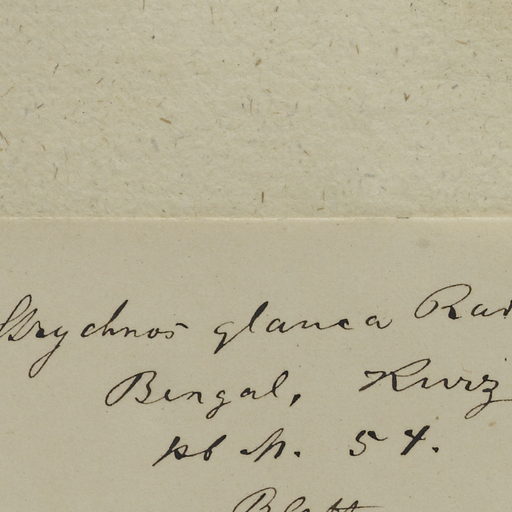 Strychnos glauca
Bengal, Kurz
hb M. 54.
Blatt